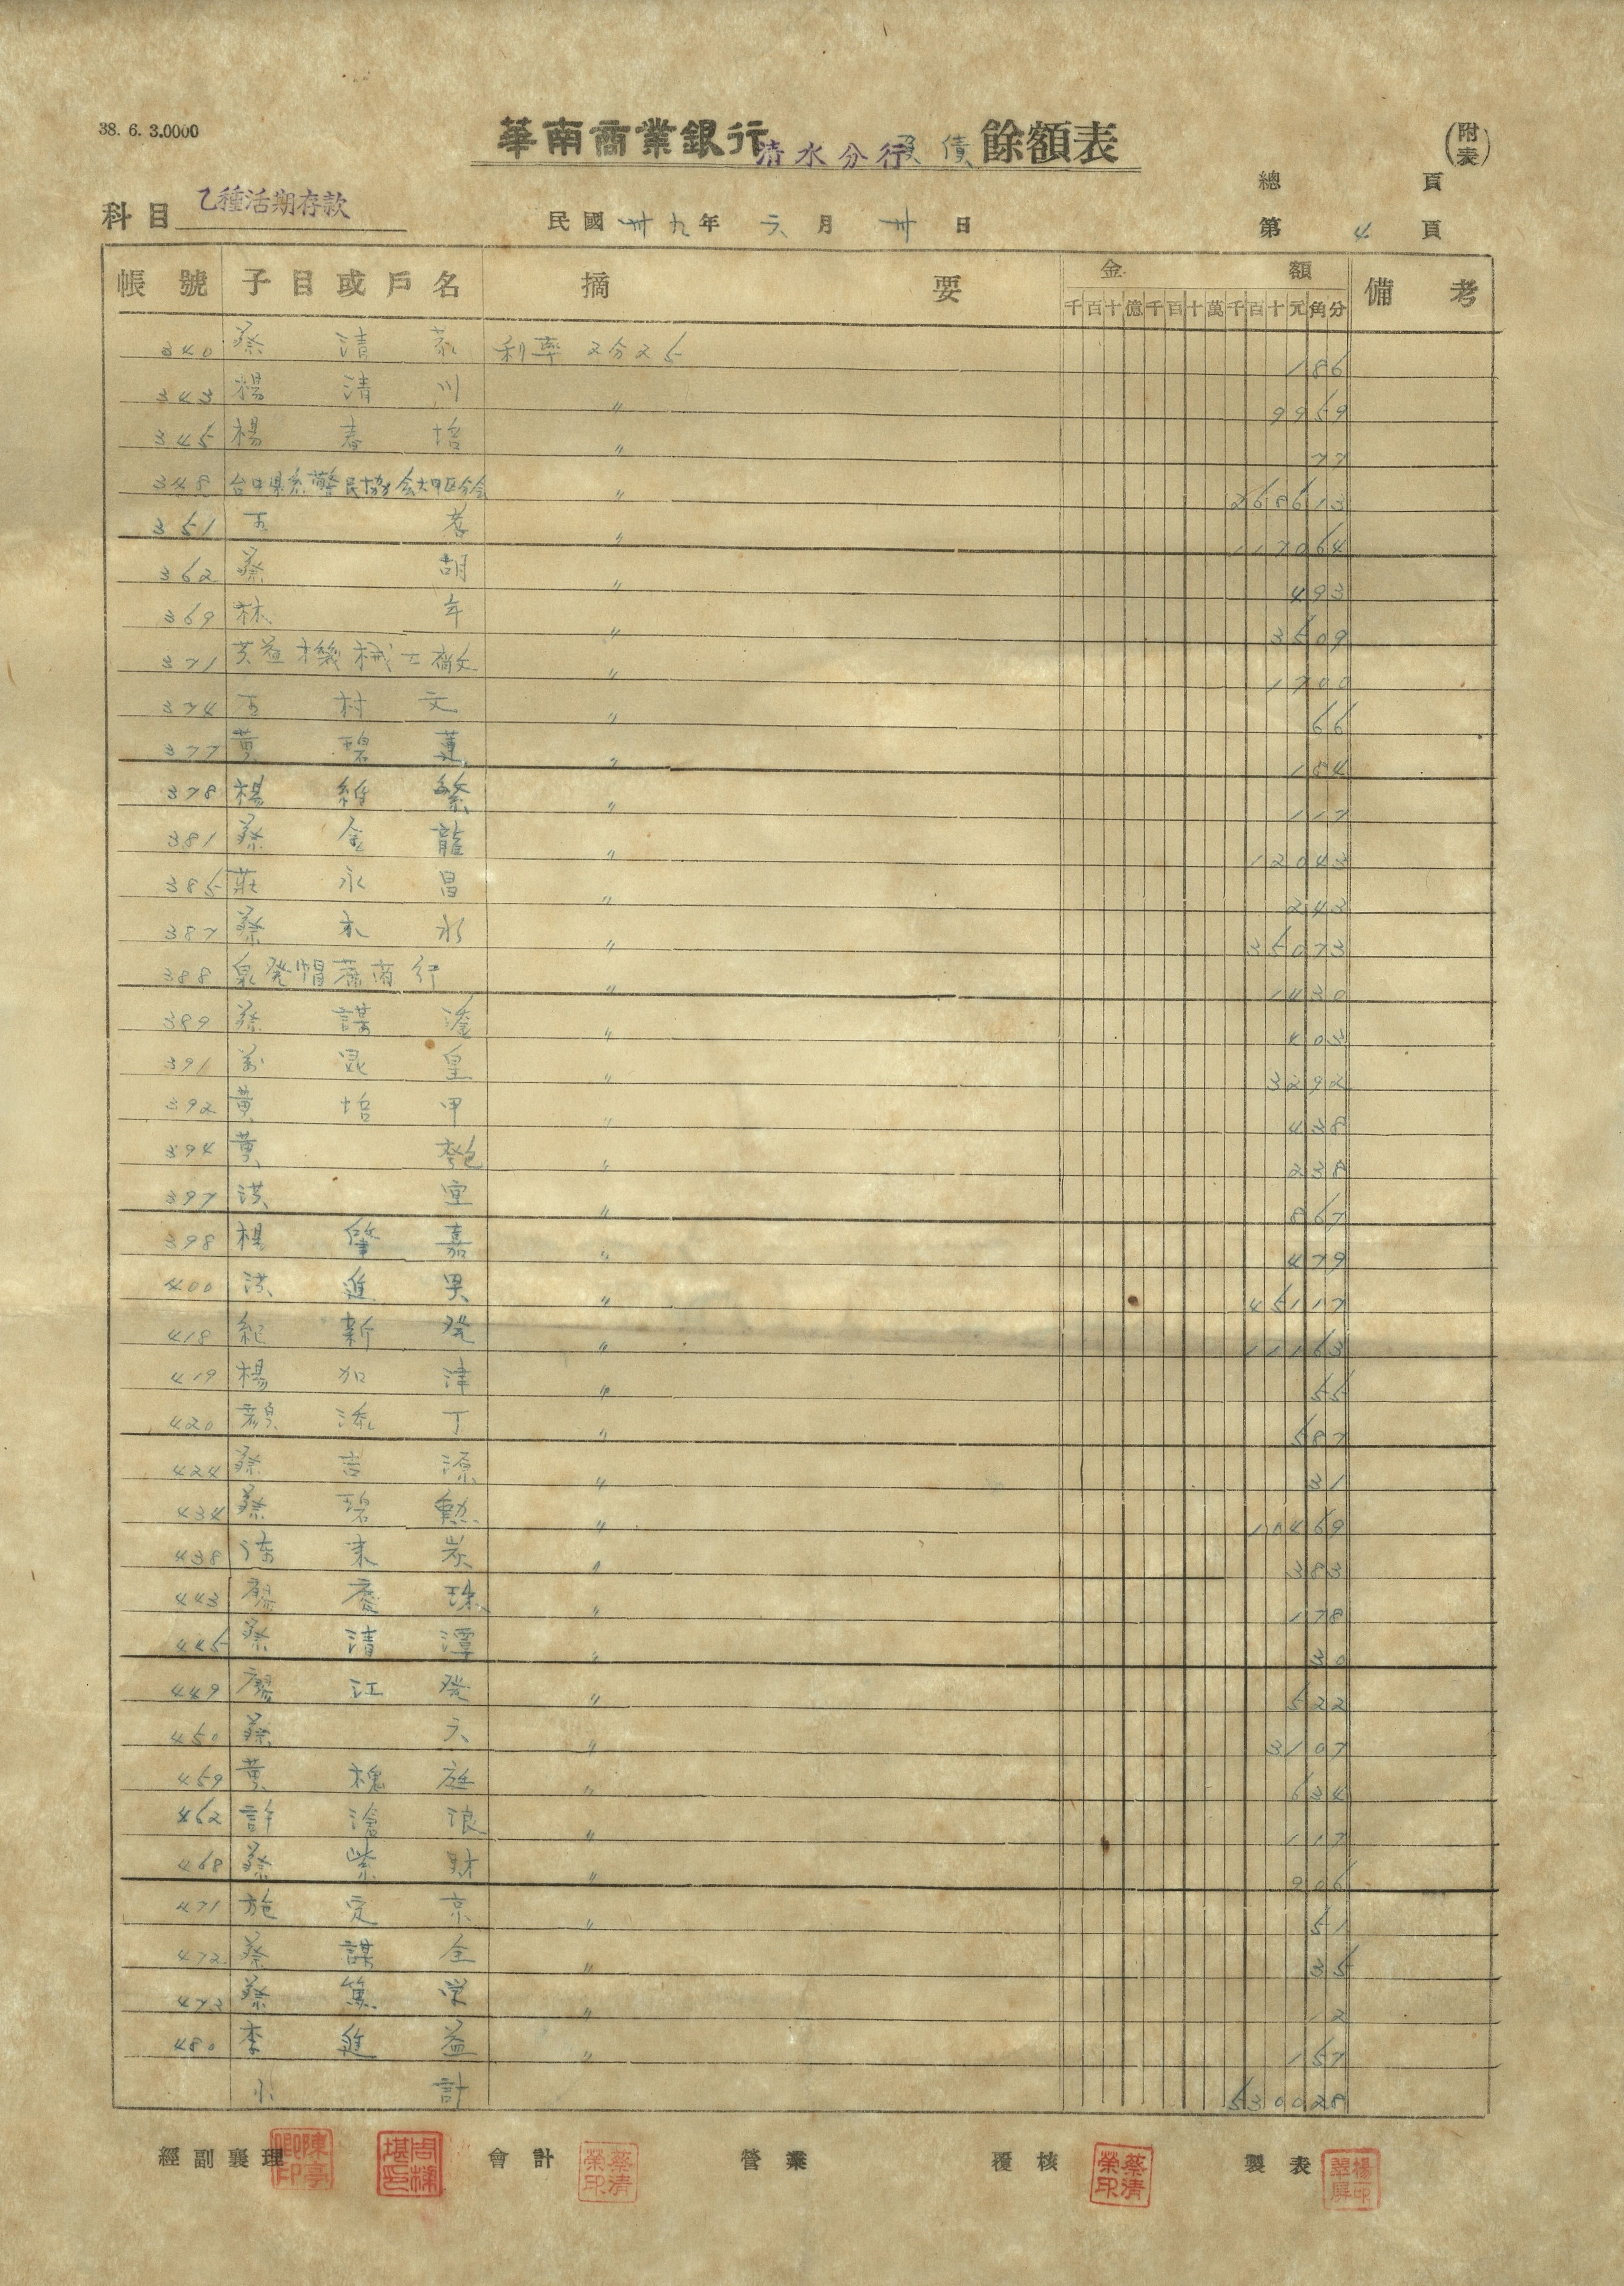 38. 6. 3.0000
華南商業銀行清水分行 債 餘額表
(附表)
總 頁
科目 乙種活期存款 民國 卅九年 六月 卅日 第 4 頁
帳號 子目或戶名 摘要 金額 備考
千百十億千百十萬千百十元角分
340 蔡清泰 利率 2分25 186
343 楊清川 〃 9959
345 楊春培 〃 77
348 〃 268613
351 王孝 〃 117064
362 蔡胡 〃 493
369 林年 〃 3509
371 機械工廠 〃 1700
374 王村文 〃 66
377 黃碧蓮 〃 184
378 楊維繁 〃 117
381 蔡金龍 〃 12043
385 莊永昌 〃 243
387 蔡 水 〃 35073
388 泉発帽蓆商行 〃 1430
389 蔡謀 〃 403
391 皇 〃 3292
392 黃培甲 〃 438
394 黃 〃 238
397 洪 〃 867
398 楊肇嘉 〃 479
400 洪進男 〃 45117
418 紀新発 〃 11163
419 楊加津 〃 55
420 顏添丁 〃 587
424 蔡吉源 〃 31
434 蔡碧勲 〃 10469
438 陳来炭 〃 383
443 廖慶珠 〃 178
445 蔡清潭 〃 30
449 廖江発 〃 522
450 蔡六 〃 3107
459 黃槐庭 〃 634
462 許滄浪 〃 117
468 蔡紫財 〃 906
471 施定京 〃 51
472 蔡謀全 〃 35
473 蔡篤栄 〃 12
480 李進益 〃 157
小計 530028
經副襄理 會計 蔡清榮印 營業 覆核 蔡清榮印 製表 楊翠屏印